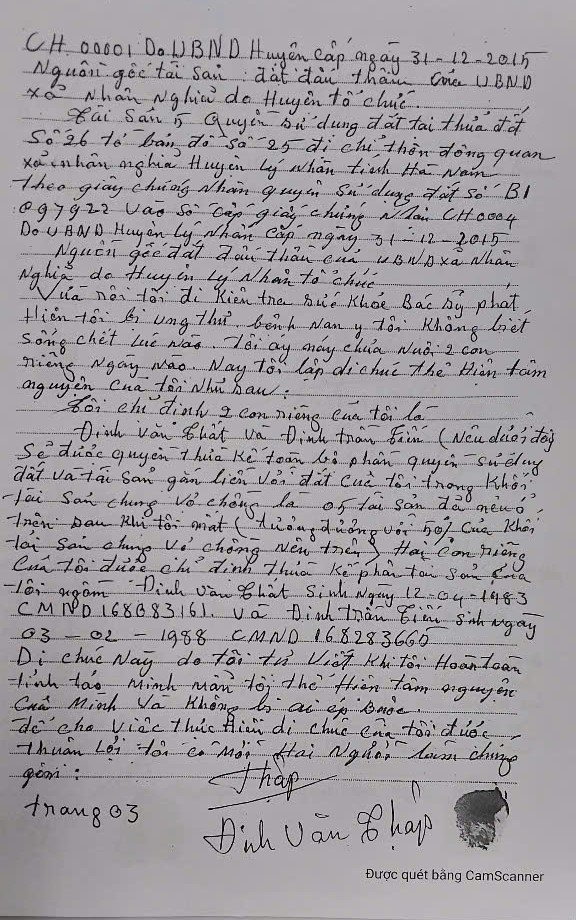 CH 00001 Do UBND Huyện Cấp ngày 31-12-2015
Nguồn gốc tài sản: đất đấu thầu của UBND
xã Nhân Nghĩa do Huyện tổ chức.
Tài Sản 5 Quyền sử dụng đất tại thửa đất
Số 26 tờ bản đồ số 25 địa chỉ thôn đồng quan
xã nhân nghĩa Huyện Lý Nhân tỉnh Hà Nam
Theo giấy chứng Nhận quyền sử dụng đất số B1
097922 vào sổ cấp giấy chứng Nhận CH0004
Do UBND Huyện Lý Nhân cấp ngày 31-12-2015
Nguồn gốc đất đấu thầu của UBND xã Nhân
Nghĩa do Huyện Lý Nhân tổ chức
Vừa rồi tôi đi Kiểm tra sức Khỏe Bác sỹ phát
Hiện tôi bị ung thư bệnh Nan y tôi Không biết
sống chết lúc nào. Tôi áy náy chưa Nuôi 2 con
riêng Ngày nào. Nay tôi lập di chúc thể Hiện tâm
nguyện của tôi Như sau:
Tôi chỉ định 2 con riêng của tôi là
Đinh Văn Chất và Đinh trần Tiến (Nêu dưới đây
sẽ được quyền thừa Kế toàn bộ phần quyền sử dụng
đất và tài sản gắn liền với đất của tôi trong Khối
tài sản chung vợ chồng là 05 tài sản đã nêu ở
trên sau Khi tôi mất (tương đương với 50% của Khối
tài sản chung vợ chồng nêu trên) Hai Con riêng
Của tôi được chỉ định thừa Kế phần tài sản của
tôi gồm Đinh Văn Chất Sinh Ngày 12-04-1983
CMND 168083161 và Đinh trần Tiến sinh ngày
03-02-1988 CMND 168283665
Di chúc Này do tôi tự Viết Khi tôi Hoàn toàn
tỉnh táo Minh mẫn tôi thể Hiện tâm nguyện
Của Mình và Không bị ai ép Buộc
để cho việc thực Hiện di chúc của tôi được
thuận Lợi tôi có Mời Hai Người làm chứng
gồm:
Thập
trang 03
Đinh Văn Thập
Được quét bằng CamScanner